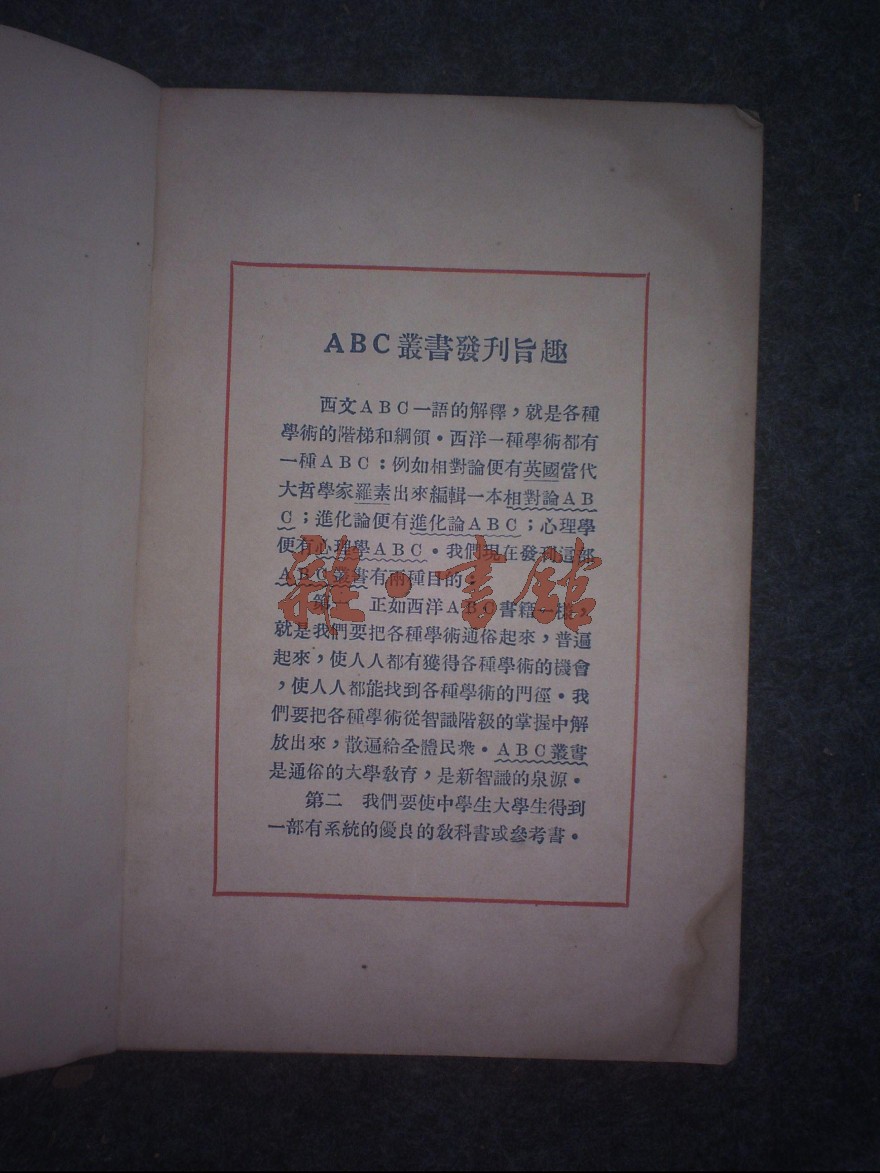 ABC叢書發刊旨趣
西文ABC一語的解釋，就是各種
學術的階梯和綱領。西洋一種學術都有
一種ABC：例如相對論便有英國當代
大哲學家羅素出來編輯一本相對論AB
C；進化論便有進化論ABC；心理學
便有心理學ABC。我們現在發刊這部
ABC叢書有兩種目的：
第一　正如西洋ABC書籍一樣，
就是我們要把各種學術通俗起來，普遍
起來，使人人都有獲得各種學術的機會
，使人人都能找到各種學術的門徑。我
們要把各種學術從智識階級的掌握中解
放出來，散遍給全體民衆。ABC叢書
是通俗的大學教育，是新智識的泉源。
第二　我們要使中學生大學生得到
一部有系統的優良的教科書或參考書。
雜·書館